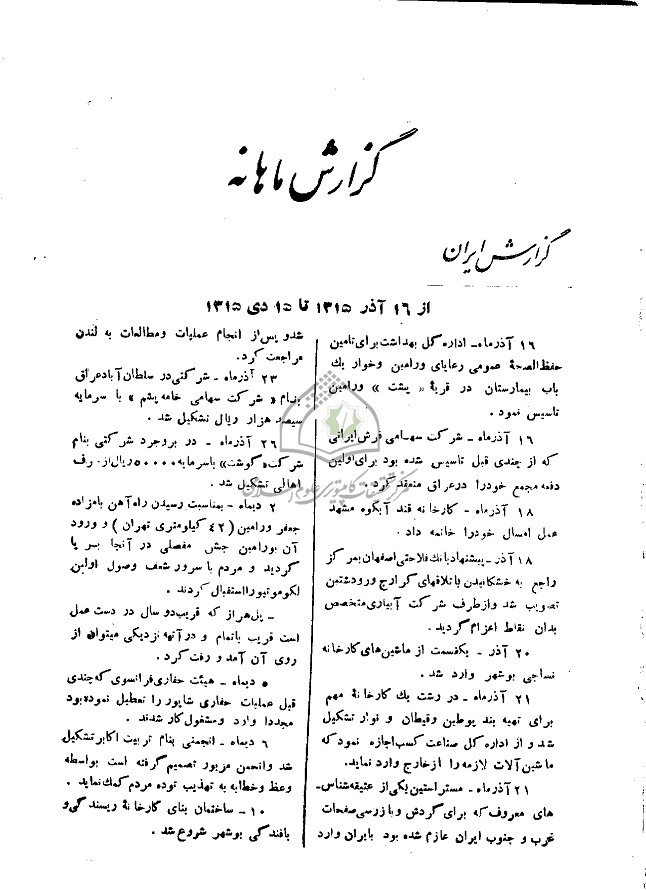 گزارش ماهانه
گزارش ایران
از ۱۶ آذر ۱۳۱۵ تا ۱۵ دی ۱۳۱۵
۱۶ آذرماه - اداره کل بهداشت برای تامین
حفظ الصحهٔ عمومی رعایای ورامین وخوار یك
باب بیمارستان در قریهٔ « پشت » ورامین
تاسیس نمود .
۱۶ آذرماه - شرکت سهامی فرش ایرانی
که از چندی قبل تاسیس شده بود برای اولین
دفعه مجمع خودرا درعراق منعقد کرد .
۱۸ آذرماه - کارخانه قند آبکوه مشهد
عمل امسال خودرا خاتمه داد .
۱۸ آذر - پیشنهاد بانك فلاحتی اصفهان بمرکز
راجع به خشکانیدن باتلاقهای کرارج ورودشتین
تصویب شد وازطرف شرکت آبیاری متخصص
بدان نقاط اعزام گردید .
۲۰ آذر - یکقسمت از ماشین های کارخانه
نساجی بوشهر وارد شد .
۲۱ آذرماه - در رشت یك کارخانهٔ مهم
برای تهیه بند پوطین وقیطان و نوار تشکیل
شد و از اداره کل صناعت کسب اجازه نمود که
ماشین آلات لازمه را ازخارج وارد نماید.
۲۱ آذرماه - مستر استین یکی از عتیقه شناس-
های معروف که برای گردش و بازرسی صفحات
غرب و جنوب ایران عازم شده بود بایران وارد
شدو پس از انجام عملیات ومطالعات به لندن
مراجعت کرد.
۲۳ آذرماه - شرکتی در سلطان آباد عراق
بنام « شرکت سهامی خامه پشم » با سرمایه
سیصد هزار ریال تشکیل شد .
۲۶ آذرماه - در بروجرد شرکتی بنام
شرکت « گوشت» باسرمایه ۵۰۰۰۰ ریال از
اهالی تشکیل شد .
۲ دیماه - بمناسبت رسیدن راه آهن بامزاده
جعفر ورامین ( ۴۲ کیلومتری تهران ) و ورود
آن بورامین جشن مفصلی در آنجا بر پا
گردید و مردم با سرور شعف وصول اولین
لکوموتیورا استقبال کردند .
- پل هراز که قریب دو سال در دست عمل
است قریب باتمام و در آتیه نزدیکی میتوان از
روی آن آمد و رفت کرد .
۵ دیماه - هیئت حفاری فرانسوی که چندی
قبل عملیات حفاری شاپور را تعطیل نموده بود
مجددا وارد ومشغول کار شدند .
۶ دیماه - انجمنی بنام تربیت اکابر تشکیل
شد وانجمن مزبور تصمیم گرفته است بواسطه
وعظ وخطابه به تهذیب توده مردم کمك نماید .
۱۰ - ساختمان بنای کارخانهٔ ریسندگی و
بافندگی بوشهر شروع شد .
مرکز تحقیقات کامپیوتری علوم اسلامی